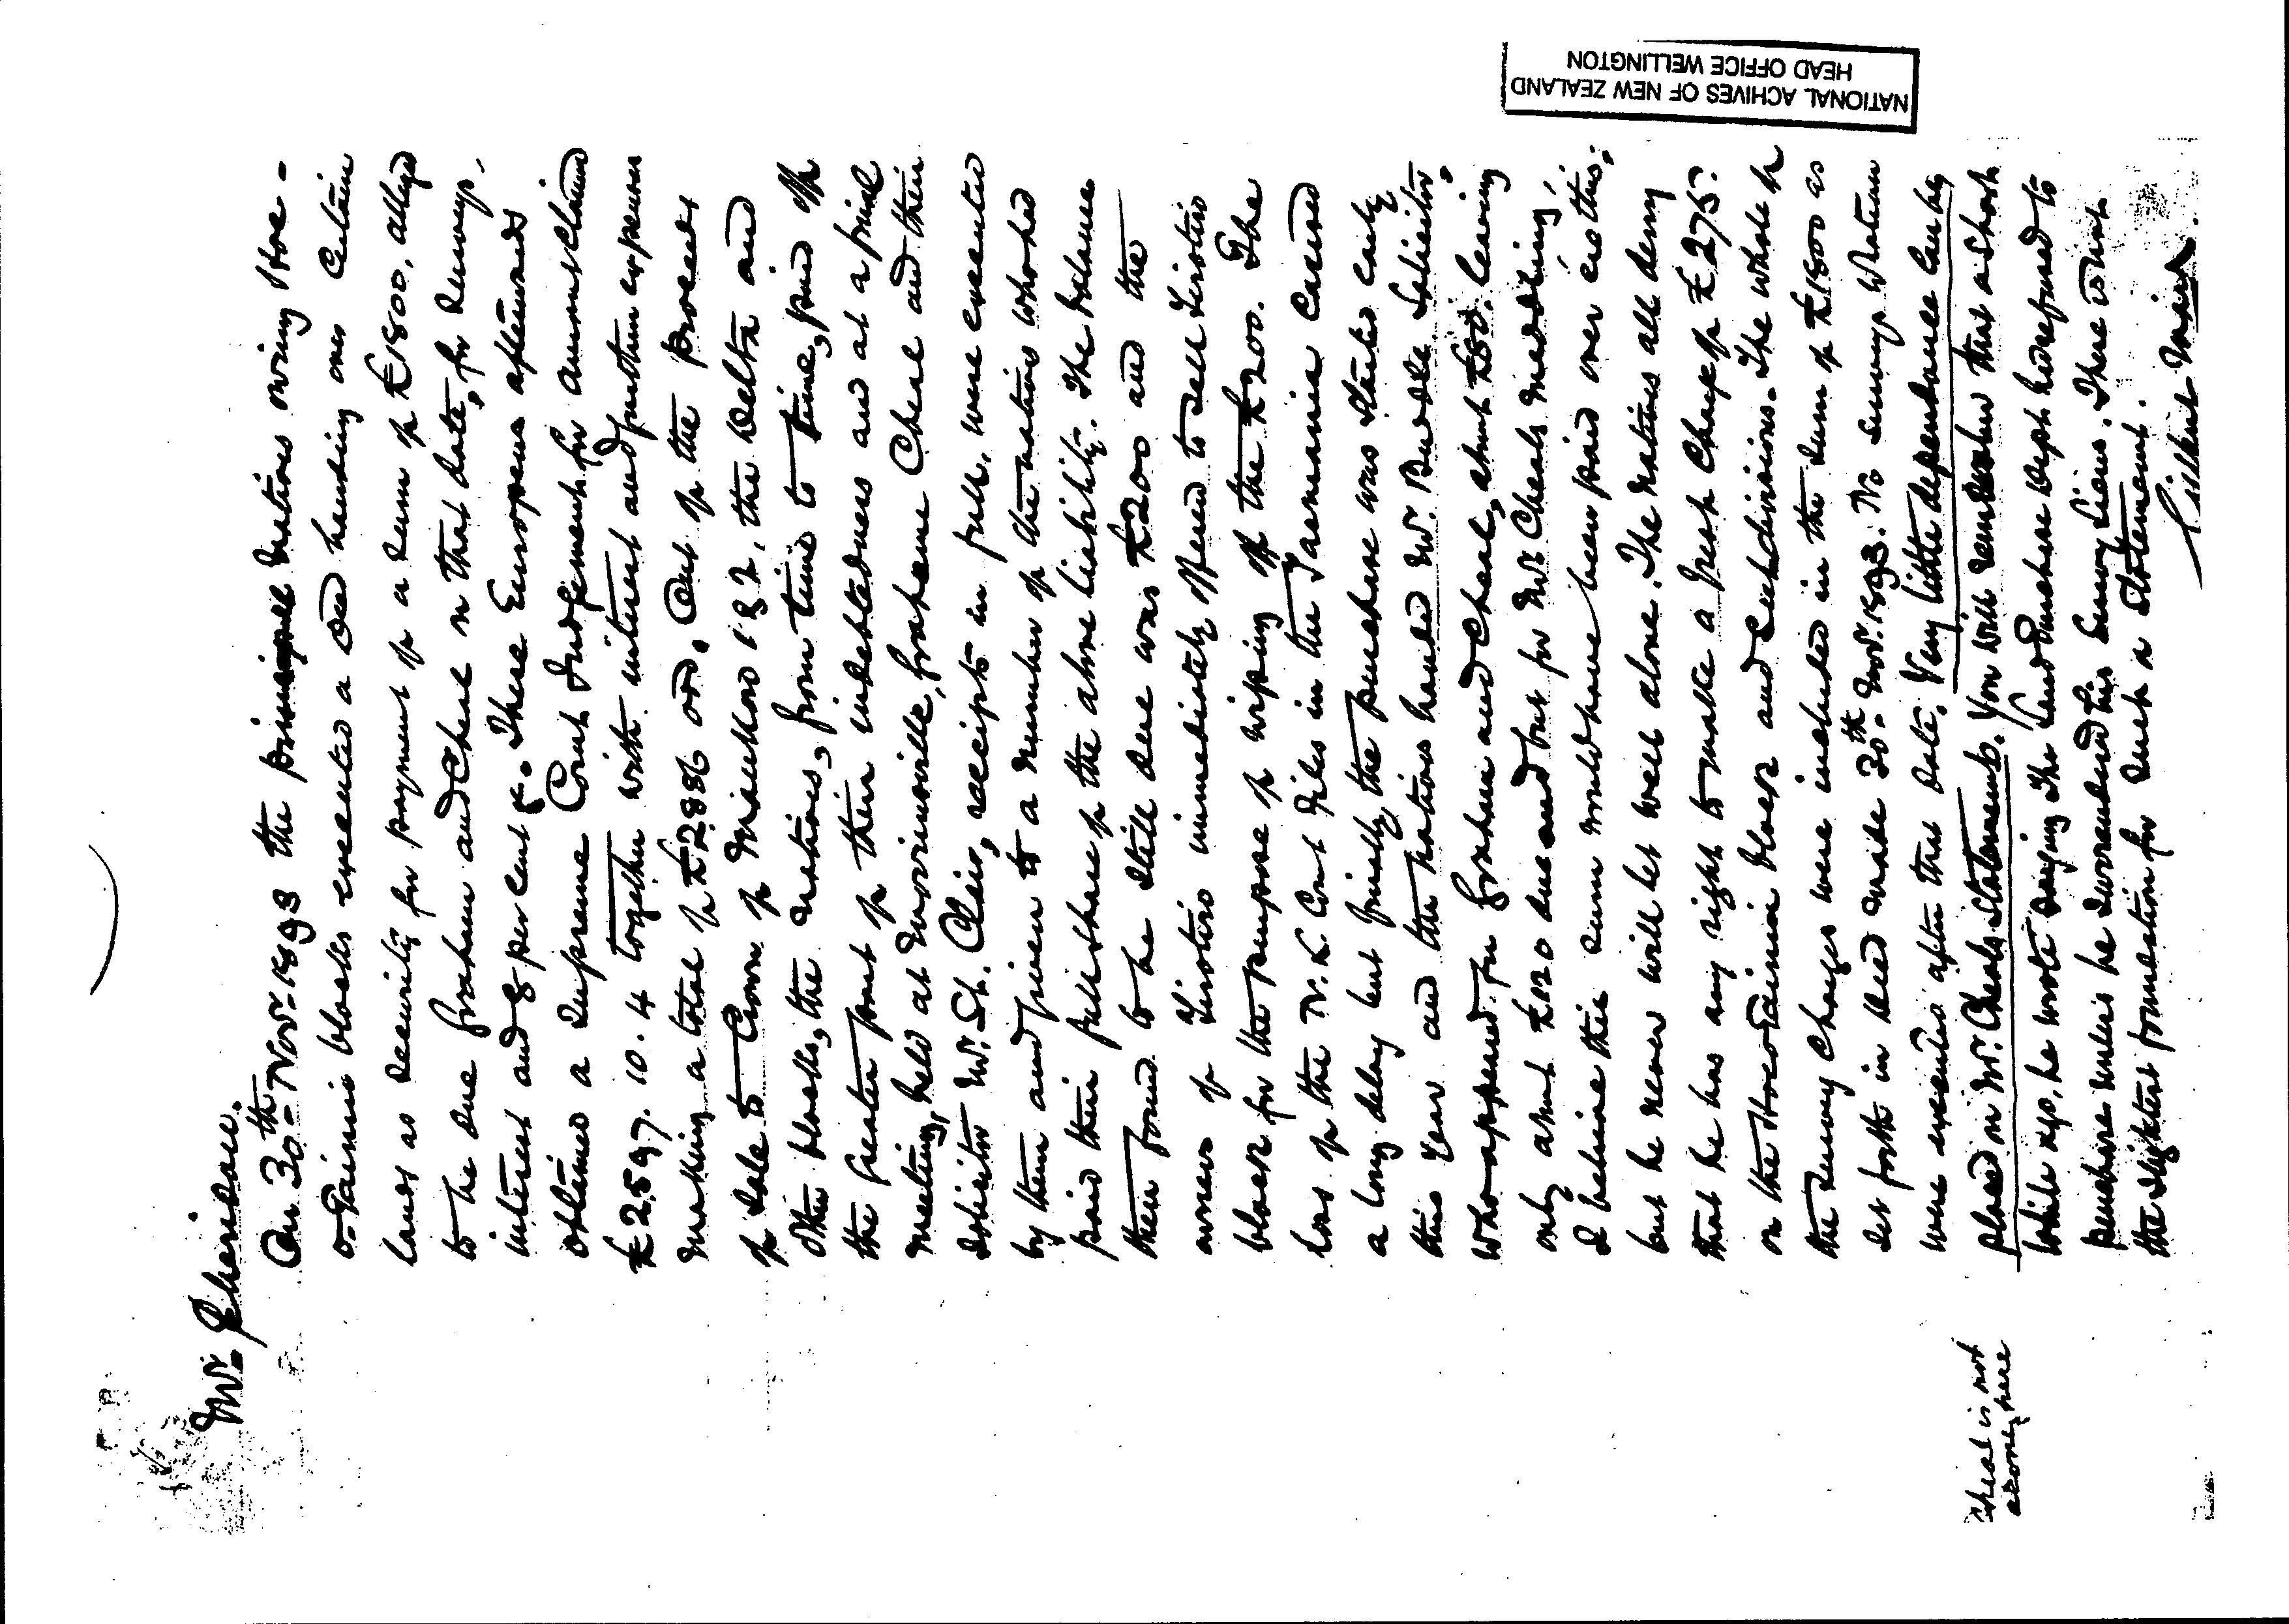 Mr. Sheridan.
On 30th Novr 1893 the principal natives owing Hoe-
o-Tainui blocks executed a deed handing over certain
lands as security for payment of a sum of £1800, alleged
to be due Graham and Cheal on that date, for surveys,
interest and 8 per cent &c. These Europeans afterwards
obtained a Supreme Court Judgement for amount claimed
£2597.10.4 together with interest and further expenses
making a total of £2886 odd. Out of the proceeds
of sale to Crown of 1 & 2, the Delta and
other blocks, the natives, from time to time, paid off
the greater part of their indebtedness and at a final
meeting, held at Morrinsville, Graham Cheal and their
solicitor Mr. St. Clair, receipts in full, were executed
by them and given to a number of the natives who had
paid their full share of the above liability. The balance
then found to be still due was £200 and the
owners of immediately offered to sell
block for the purpose of wiping off the £200. The
loss of the N.L. Court files in the Tasmania caused
a long delay but finally the purchase was started early
this year and the natives handed Mr. Buddle, Solicitor,
who appeared for Graham and Cheal, about £80, leaving
only about £120 due and but for Mr. Cheal's meddling,
I believe this sum would have been paid over ere this;
but he never will let well alone. The natives all deny
that he has any right to make a fresh charge of £275.
on the Hoe o Tainui blocks and subdivisions. The whole of
the survey charges were included in the sum of £1800 as
set forth in deed made 30th Novr. 1893. No surveys whatever
were executed after that date. Very little dependance can be
placed on Mr. Cheal's statements. You will remember that a short
while ago, he wrote saying the Land Purchase Dept. had refused to
purchase unless he surrendered his survey liens. There is not
the slightest foundation for such a statement.
Gilbert Mair.
Cheal is not
alone, here
NATIONAL ACHIVES OF NEW ZEALAND
HEAD OFFICE WELLINGTON